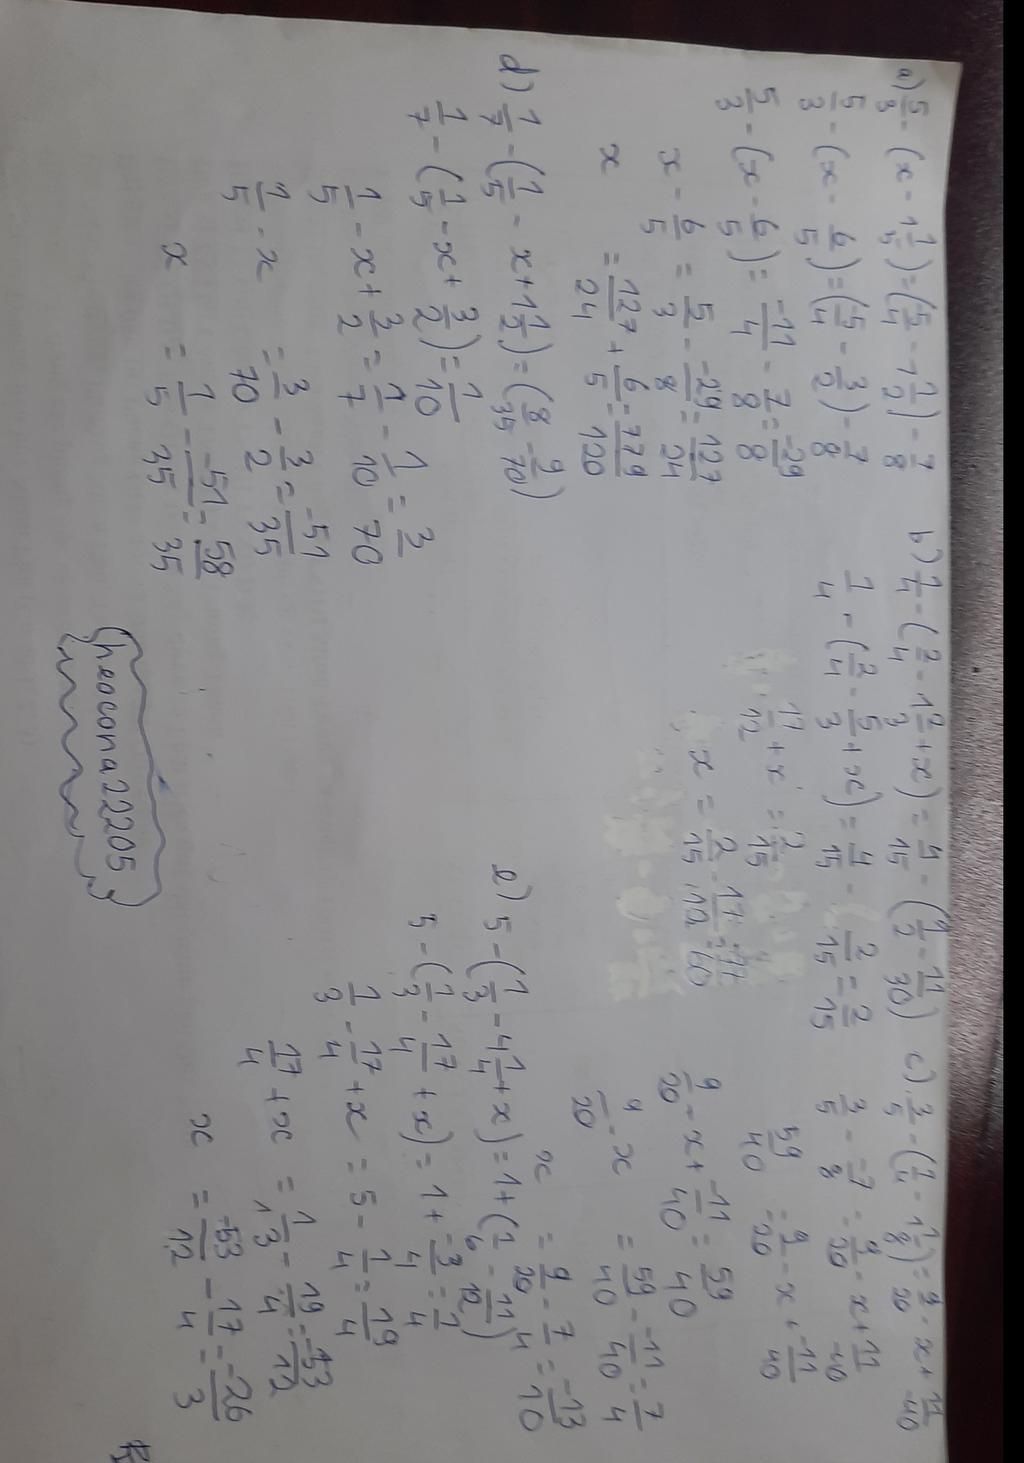 a) 5/3 - (x - 1 1/5) = (5/4 - 1 1/2) - 7/8
5/3 - (x - 6/5) = (5/4 - 3/2) - 7/8
5/3 - (x - 6/5) = -11/4 - 7/8 = -29/8
x - 6/5 = 5/3 - -29/8 = 127/24
x = 127/24 + 6/5 = 779/120
b) 1/4 - (2/4 - 1 2/3 + x) = 4/15 - (1/2 - 11/30)
1/4 - (2/4 - 5/3 + x) = 4/15 - 2/15 = 2/15
17/12 + x = 2/15
x = 2/15 - 17/12 = -77/60
c) 3/5 - (1/4 - 1 1/8) = 9/20 - x + 11/-40
3/5 - -7/8 = 9/20 - x + 11/-40
59/40 = 9/20 - x + -11/40
9/20 - x + -11/40 = 59/40
9/20 - x = 59/40 - -11/40 = 7/4
x = 9/20 - 7/4 = -13/10
d) 1/7 - (1/5 - x + 1 1/2) = (8/35 - 9/70)
1/7 - (1/5 - x + 3/2) = 1/10
1/5 - x + 3/2 = 1/7 - 1/10 = 3/70
1/5 - x = 3/70 - 3/2 = -51/35
x = 1/5 - -51/35 = 58/35
e) 5 - (1/3 - 4 1/4 + x) = 1 + (1/6 - 11/12)
5 - (1/3 - 17/4 + x) = 1 + -3/4 = 1/4
1/3 - 17/4 + x = 5 - 1/4 = 19/4
17/4 + x = 1/3 - 19/4 = -53/12
x = -53/12 - 17/4 = -26/3
(heocona22205)